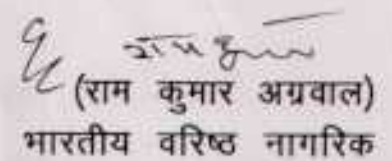 राम कुमार
(राम कुमार अग्रवाल)
भारतीय वरिष्ठ नागरिक